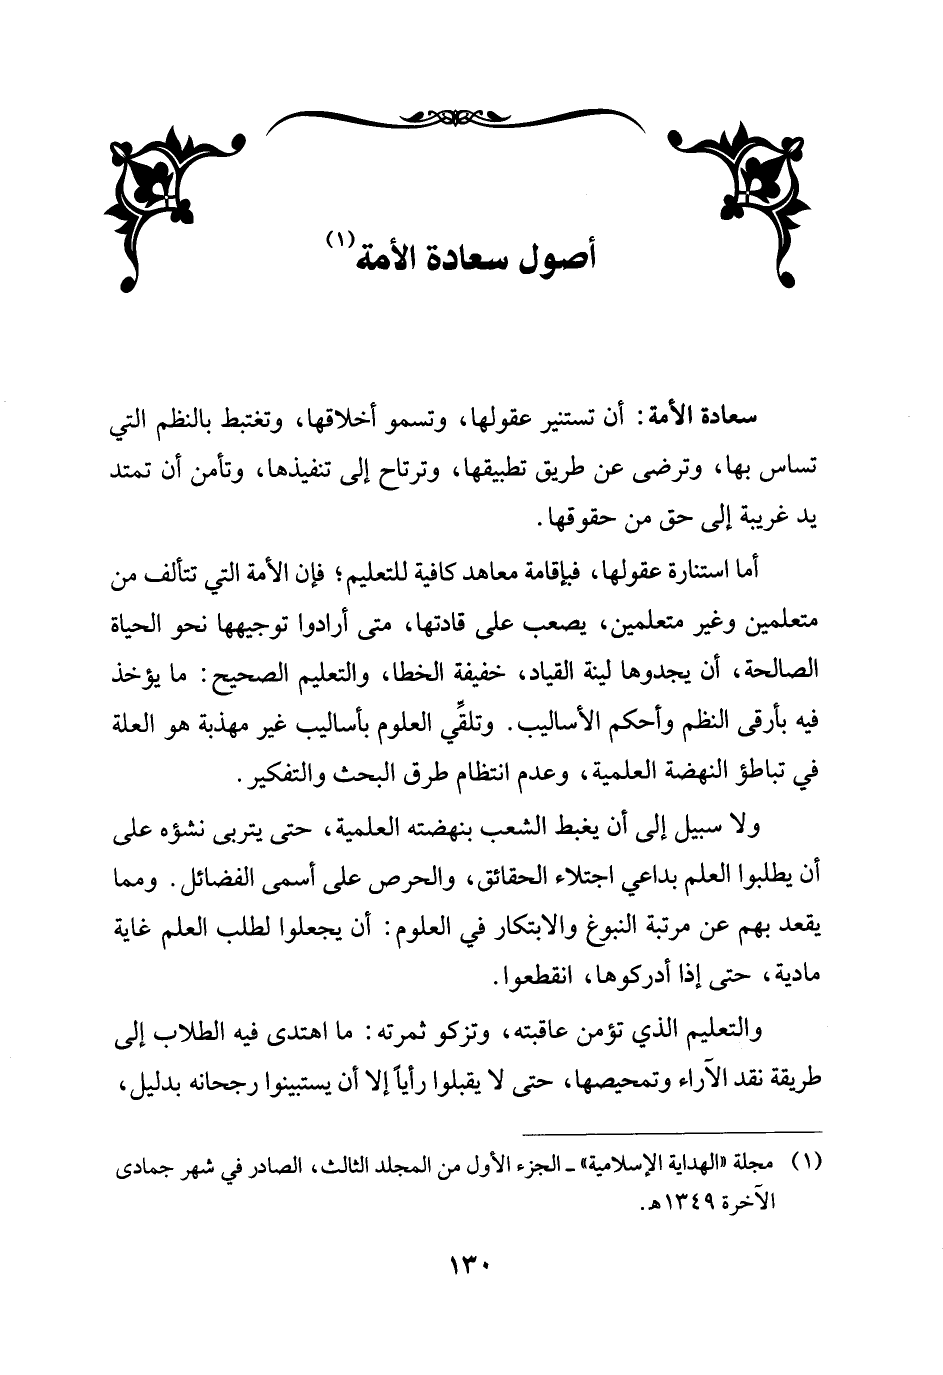 أصول سعادة الأمة(١)
سعادة الأمة: أن تستنير عقولها، وتسمو أخلاقها، وتغتبط بالنظم التي
تساس بها، وترضى عن طريق تطبيقها، وترتاح إلى تنفيذها، وتأمن أن تمتد
يد غريبة إلى حق من حقوقها.
أما استنارة عقولها، فبإقامة معاهد كافية للتعليم؛ فإن الأمة التي تتألف من
متعلمين وغير متعلمين، يصعب على قادتها، متى أرادوا توجيهها نحو الحياة
الصالحة، أن يجدوها لينة القياد، خفيفة الخطا، والتعليم الصحيح: ما يؤخذ
فيه بأرقى النظم وأحكم الأساليب. وتلقِّي العلوم بأساليب غير مهذبة هو العلة
في تباطؤ النهضة العلمية، وعدم انتظام طرق البحث والتفكير.
ولا سبيل إلى أن يغبط الشعب بنهضته العلمية، حتى يتربى نشؤه على
أن يطلبوا العلم بداعي اجتلاء الحقائق، والحرص على أسمى الفضائل. ومما
يقعد بهم عن مرتبة النبوغ والابتكار في العلوم: أن يجعلوا لطلب العلم غاية
مادية، حتى إذا أدركوها، انقطعوا.
والتعليم الذي تؤمن عاقبته، وتزكو ثمرته: ما اهتدى فيه الطلاب إلى
طريقة نقد الآراء وتمحيصها، حتى لا يقبلوا رأياً إلا أن يستبينوا رجحانه بدليل،
(١) مجلة «الهداية الإسلامية» ـ الجزء الأول من المجلد الثالث، الصادر في شهر جمادى
الآخرة ١٣٤٩هـ.
١٣٠